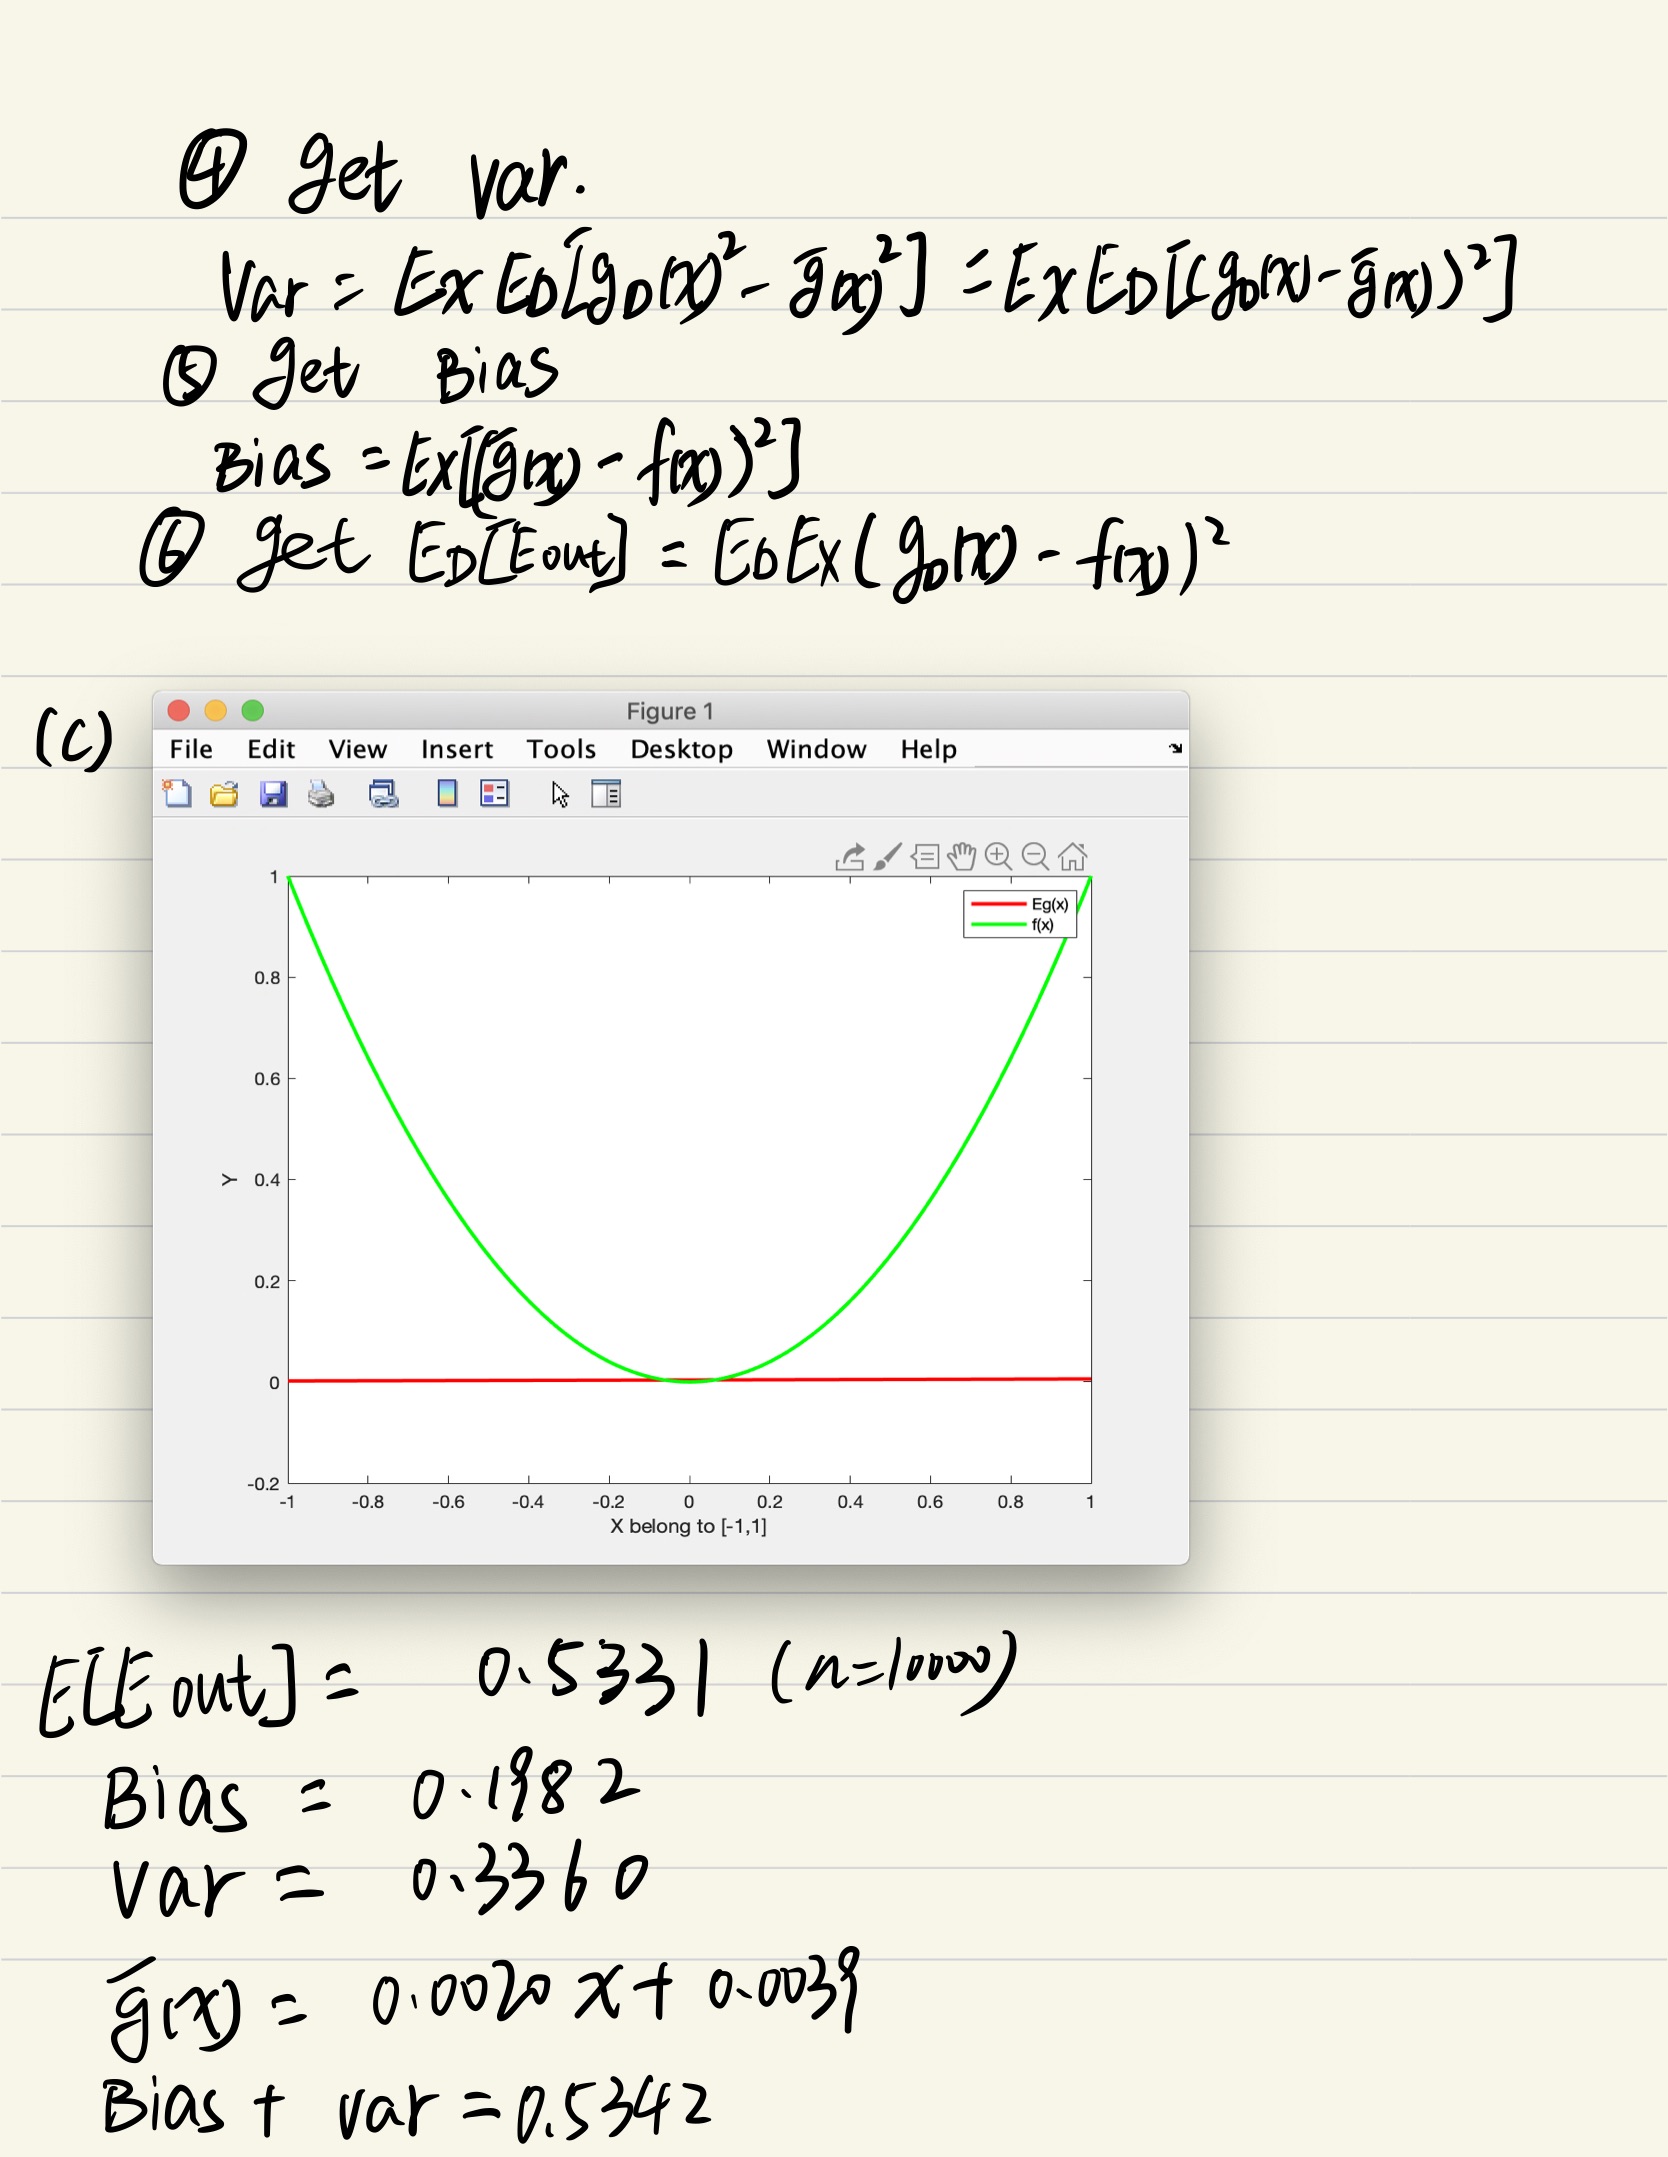 ④ get var.
Var = Ex ED[gD(x)² - ḡ(x)²] = Ex ED[(gD(x) - ḡ(x))²]
⑤ get Bias
Bias = Ex[(ḡ(x) - f(x))²]
⑥ get ED[Eout] = ED Ex (gD(x) - f(x))²
(c)
Figure 1
File Edit View Insert Tools Desktop Window Help
Eg(x)
f(x)
1
0.8
0.6
0.4
0.2
0
-0.2
Y
-1 -0.8 -0.6 -0.4 -0.2 0 0.2 0.4 0.6 0.8 1
X belong to [-1,1]
E[Eout] = 0.5331 (n=10000)
Bias = 0.1982
Var = 0.3360
ḡ(x) = 0.0020 x + 0.0039
Bias + var = 0.5342